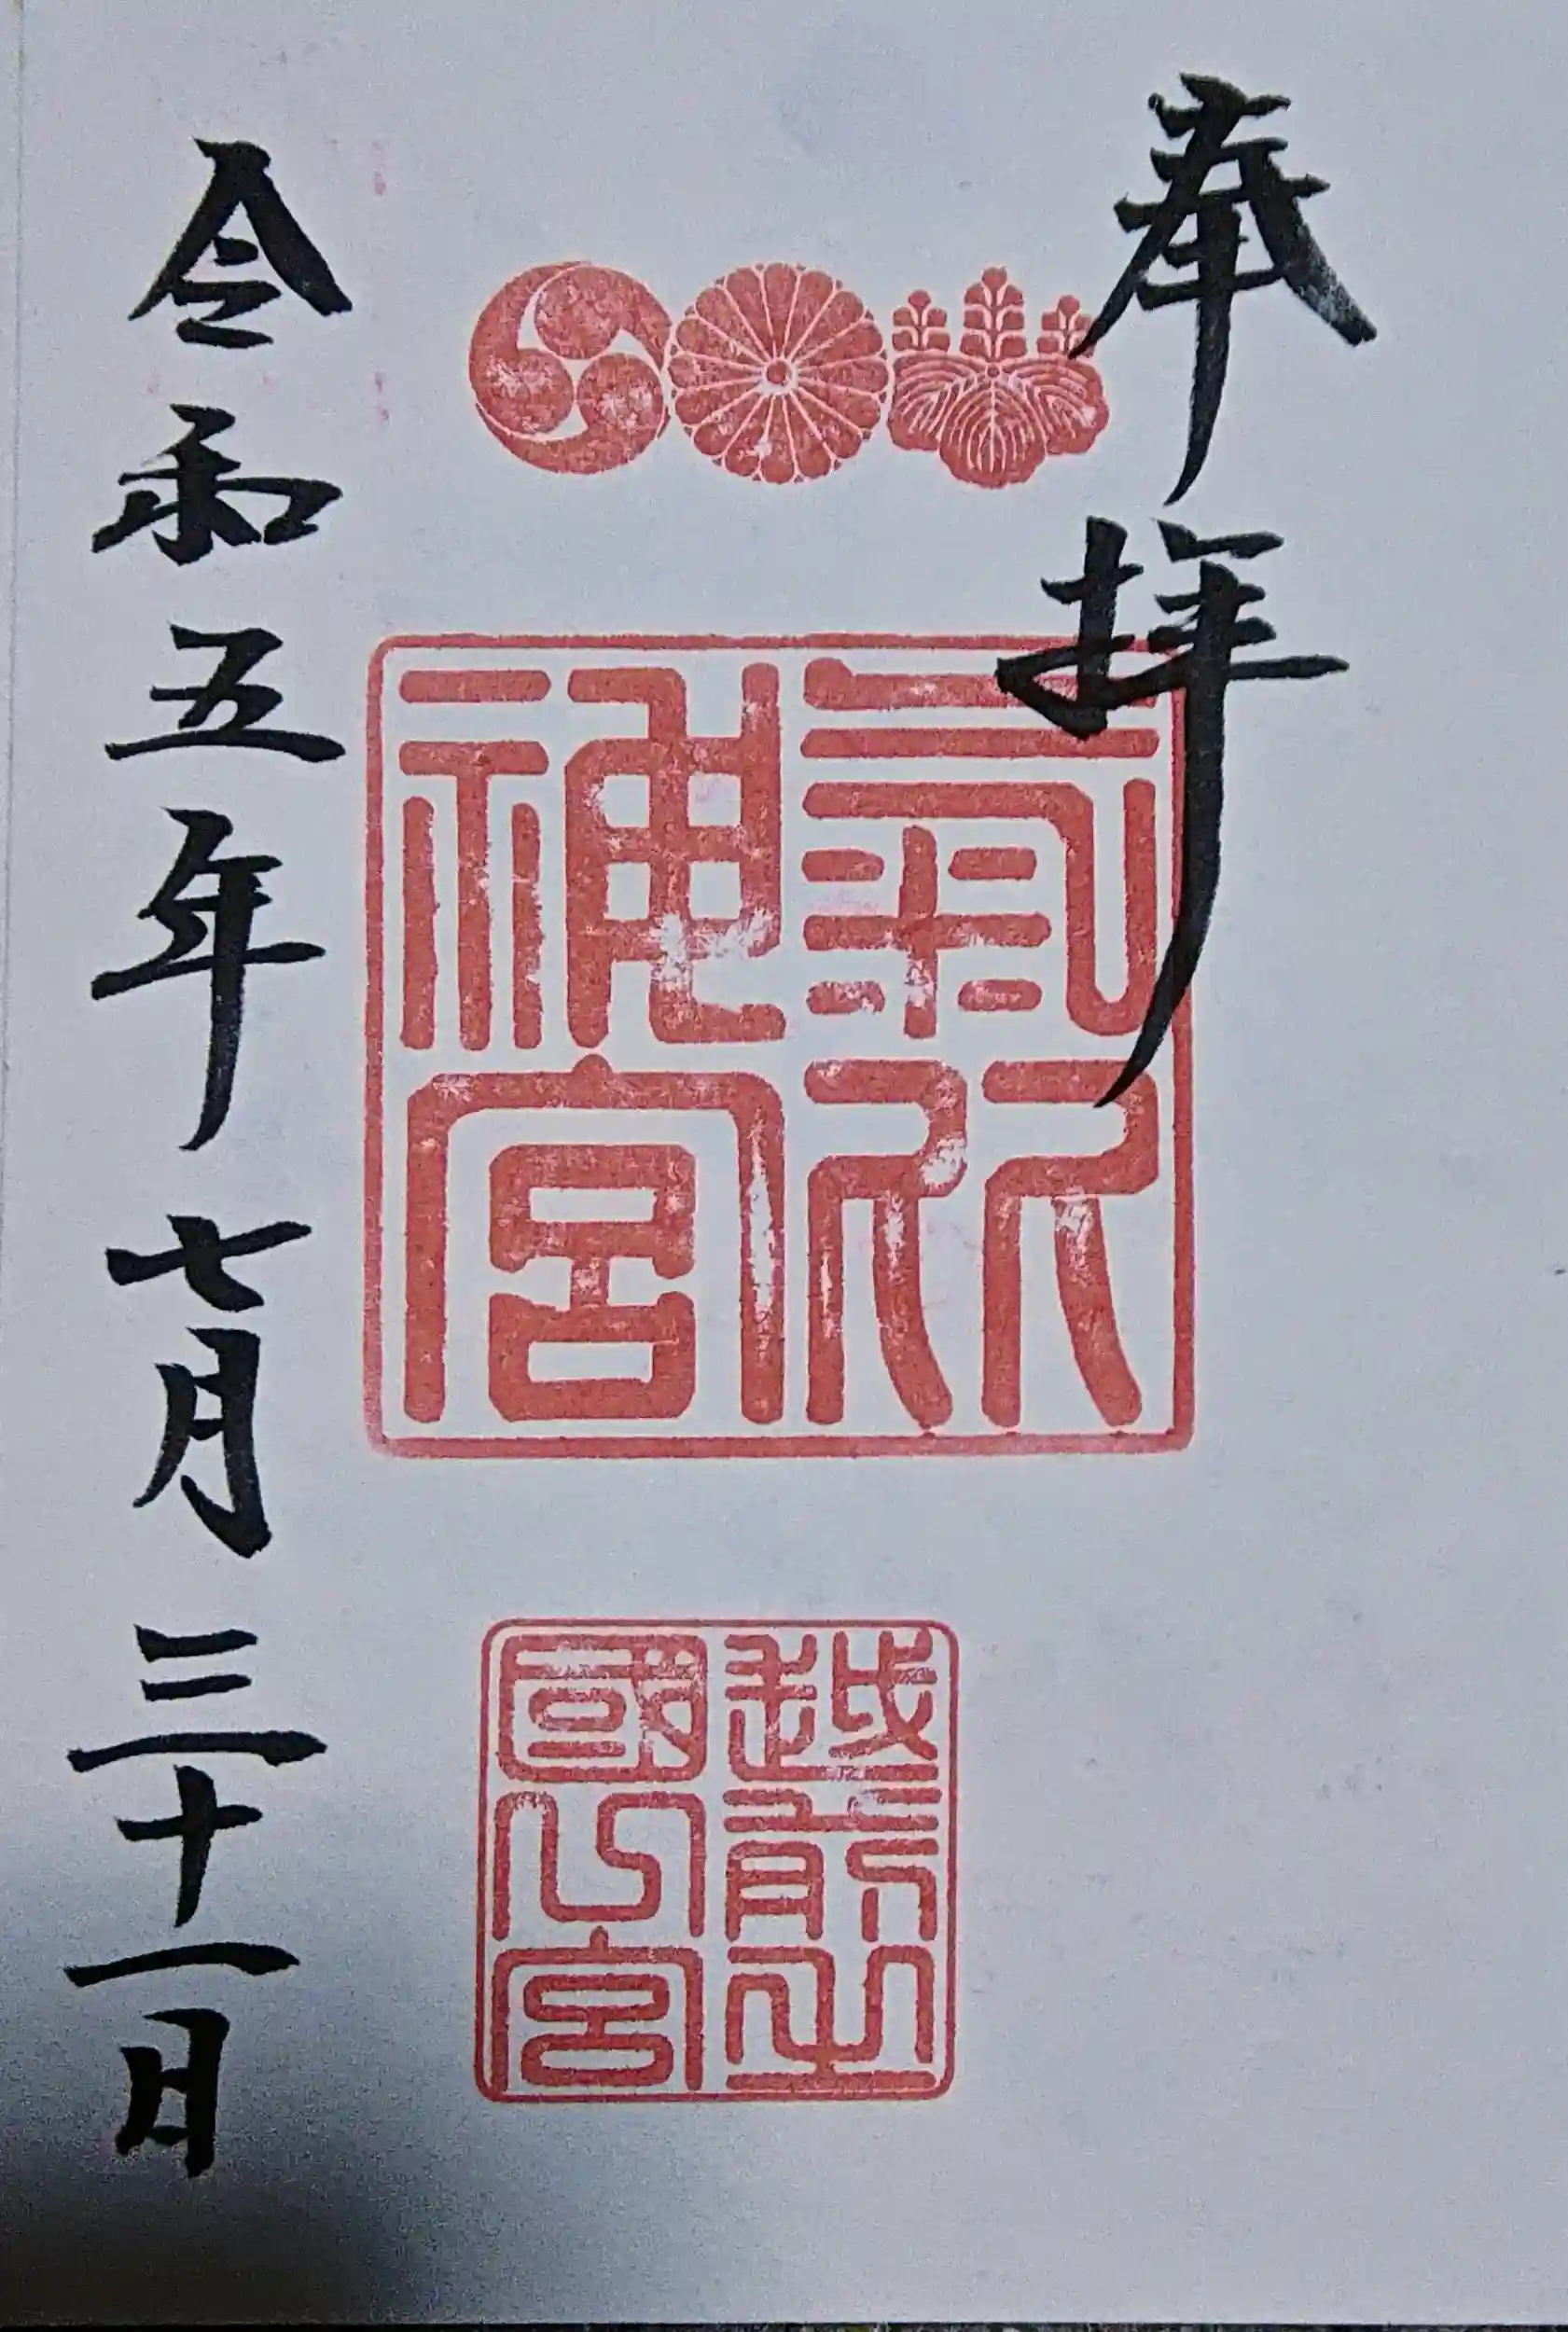 奉拝
氣比
神宮
越前之
國一宮
令和五年七月三十一日